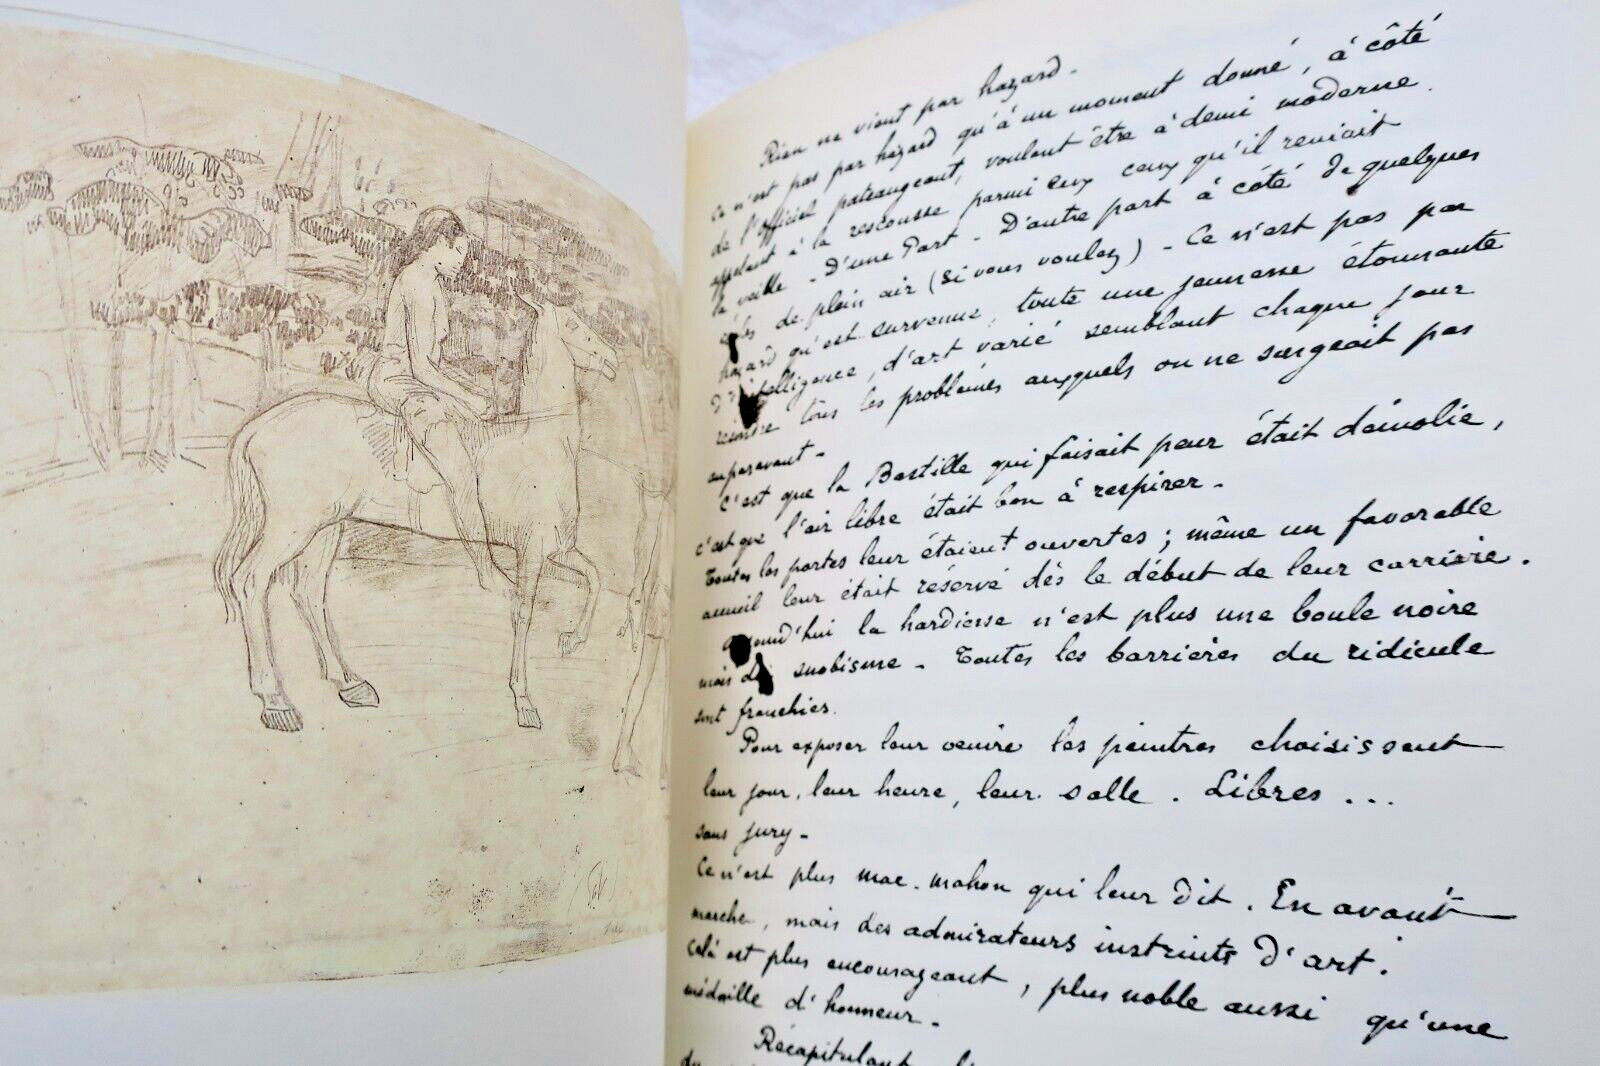 Rien ne vient par hazard -
Ce n'est pas par hazard qu'à un moment donné, à côté
de l'Officiel pateaugeant, voulant être à demi moderne
appelant à la rescousse parmi eux ceux qu'il reniait
la veille - D'une Part - D'autre part à côté de quelques
de plein air (si vous voulez) - Ce n'est pas par
hazard qu'est survenue, toute une jeunesse étonnante
d'intelligence, d'art varié semblant chaque jour
résoudre tous les problèmes auxquels on ne songeait pas
auparavant -
C'est que la Bastille qui faisait peur était démolie,
c'est que l'air libre était bon à respirer -
Toutes les portes leur étaient ouvertes ; même un favorable
accueil leur était réservé dès le début de leur carrière.
Aujourd'hui la hardiesse n'est plus une boule noire
mais du snobisme - Toutes les barrières du ridicule
sont franchies.
Pour exposer leur oeuvre les peintres choisissent
leur jour, leur heure, leur salle. Libres ...
sans jury -
Ce n'est plus mac-mahon qui leur dit. En avant
marche, mais des admirateurs instruits d'art.
Celà est plus encourageant, plus noble aussi qu'une
médaille d'honneur -
Récapitulant
du